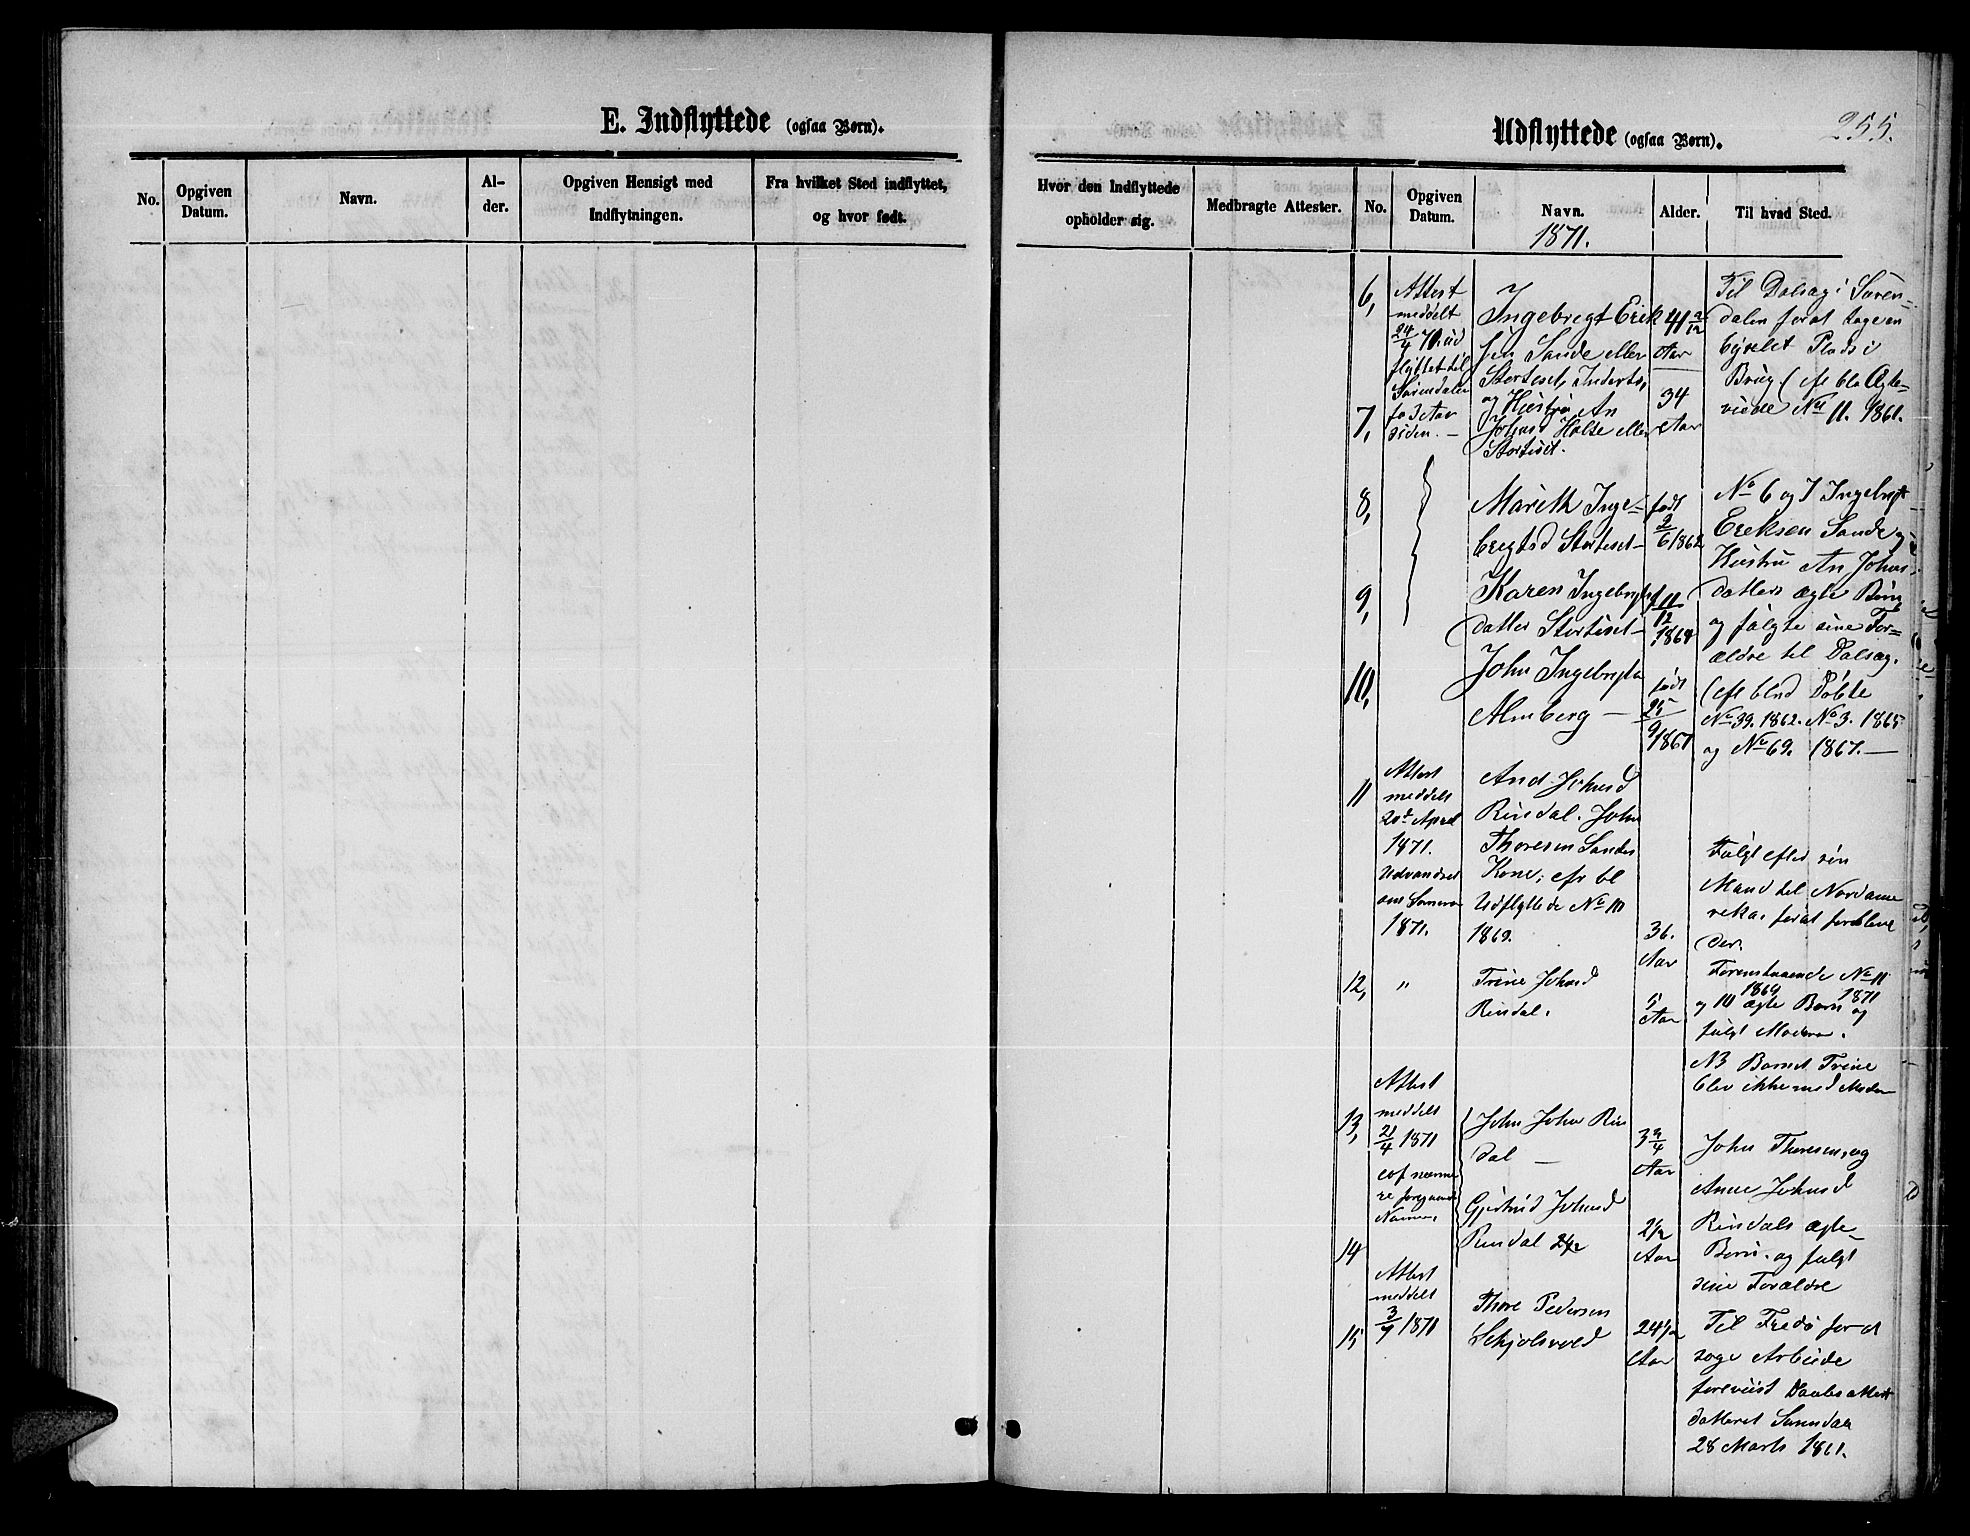 E. Indflyttede (ogsaa Børn).
No.
Opgiven Datum.
Navn.
Al-
der.
Opgiven Hensigt med
Indflytningen.
Fra hvilket Sted indflyttet,
og hvor født.
Udflyttede (ogsaa Børn).
255.
Hvor den Indflyttede
opholder sig.
Medbragte Attester.
No.
Opgiven
Datum.
Navn.
1871.
Alder.
Til hvad Sted.
6,
Attest
meddelt
24/4 71. ud
flyttet til
Surendalen
fo 3 Aar
siden. —
Ingebregt Erik
sen Sande eller
Storteset, Inderts,
41 2/12
Aar
Til Dalsæg i Suren-
dalen forat tage en
bÿxlet Plads i
Brug (cfr bla Ægte-
viede No 11. 1861.
7,
og Hustru An
Johnsd Halse eller
Storteset.
34
Aar
8,
Marith Inge-
brigtsd Storteset-
født
2/6 1862
No 6 og 7 Ingebrigt
Eriksen Sande og
Hustru An Johns
datters ægte Børn
og fulgte sine For-
ældre til Dalsæg.
(cfr bland Døbte
No 39. 1862. No 3. 1865
og No 69. 1867. —
9,
Karen Ingebrigts
datter Storteset-
f 11/12
1864
10,
John Ingebrigts
Almberg —
født
25/9 1867
11
Attest
meddelt
20de April
1871.
Udvandret
om Sommeren
1871.
And Johnsd
Rindal. John
Thoresen Sandes
Kone, cfr bl
Udflyttede No 10
1869.
36.
Aar
Fulgt efter sin
Mand til Nordame
rika, forat forblive
der.
12,
"
Trine Johnsd
Rindal.
5
Aar
Forenstaaende No 11
1871
og 10 1869 ægte Barn og
fulgt Moderen.
NB Barnet Trine
blev ikke med Moderen
13,
Attest
meddelt
21/4 1871
cof nærme
re foregaaende
Numer.
John Johns Rin
dal —
3 3/4
Aar
John Thoresen, og
Anne Johnsd
Rindals ægte
Børn, og fulgt
sine Forældre
14
Gjertrud Johnsd
Rindal 2 1/2
2 1/2
Aar
15
Attest
meddelt
3/7 1871
Thore Pedersen
Skjølsvold
24 1/2
Aar
Til Fredø forat
søge Arbeide
foreviist Daabsattest
dateret Surendal
28 Marts 1861.